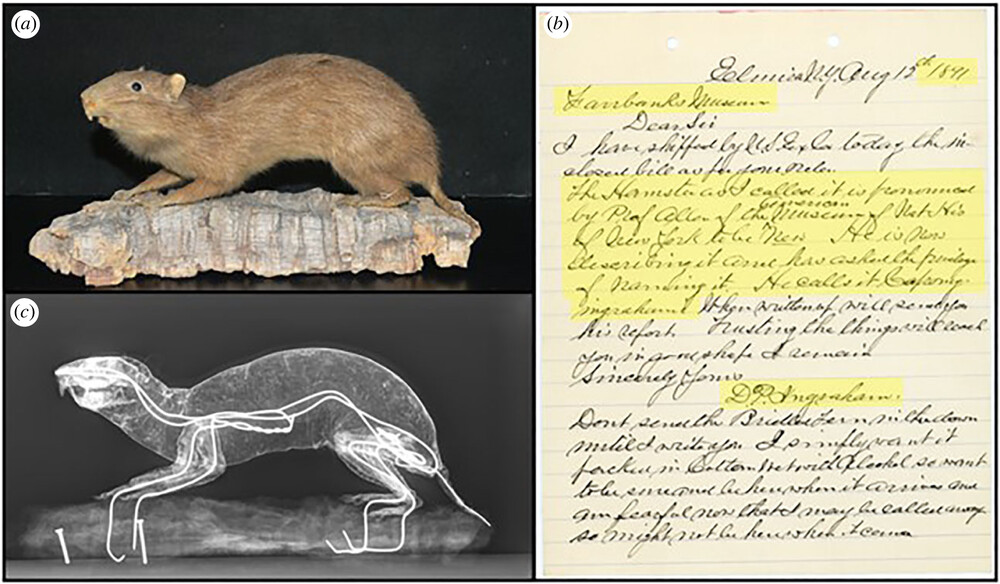 (a)
(b)
(c)
Elmira N.Y. Aug 12th 1891
Fairbanks Museum
Dear Sir
I have shipped by U.S. Ex Co today the in-
closed bill as per your order.
The Hamster as I called it is pronounced
American
by Prof Allen of the Museum of Nat His
of New York to be New He is now
describing it and has asked the privilege
of naming it. He calls it Capromys
ingrahami When written up will send you
his report. Trusting the things will reach
you in good shape I remain
Sincerely Yours
D.P. Ingraham.
Dont send the Bridled Tern in the down
until I write you I simply want it
packed in Cotton Wet with Alcohol so want
to be sure and be here when it arrives and
am fearful now that I may be called away
so might not be here when it comes